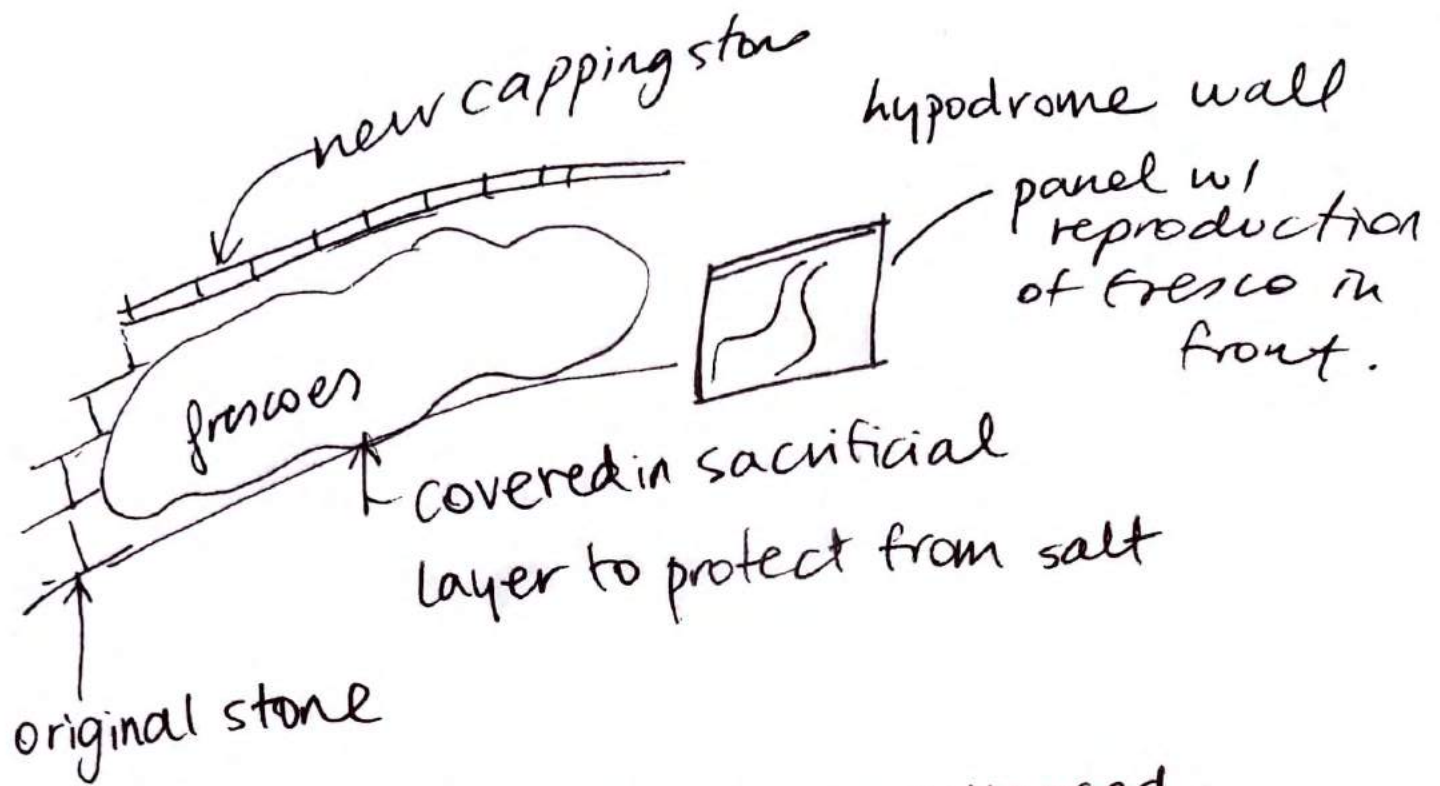 new capping stone
hypodrome wall
panel w/
reproduction
of fresco in
front.
frescoes
covered in sacrificial
layer to protect from salt
original stone